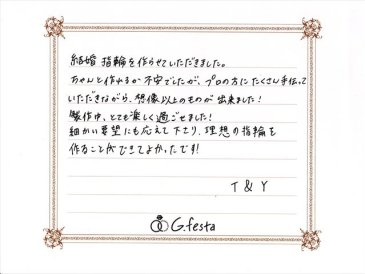 結婚指輪を作らせていただきました。
ちゃんと作れるか不安でしたが、プロの方にたくさん手伝って
いただきながら、想像以上のものが出来ました!
製作中、とても楽しく過ごせました!
細かい要望にも応えて下さり、理想の指輪を
作ることができてよかったです!
T & Y
G.festa